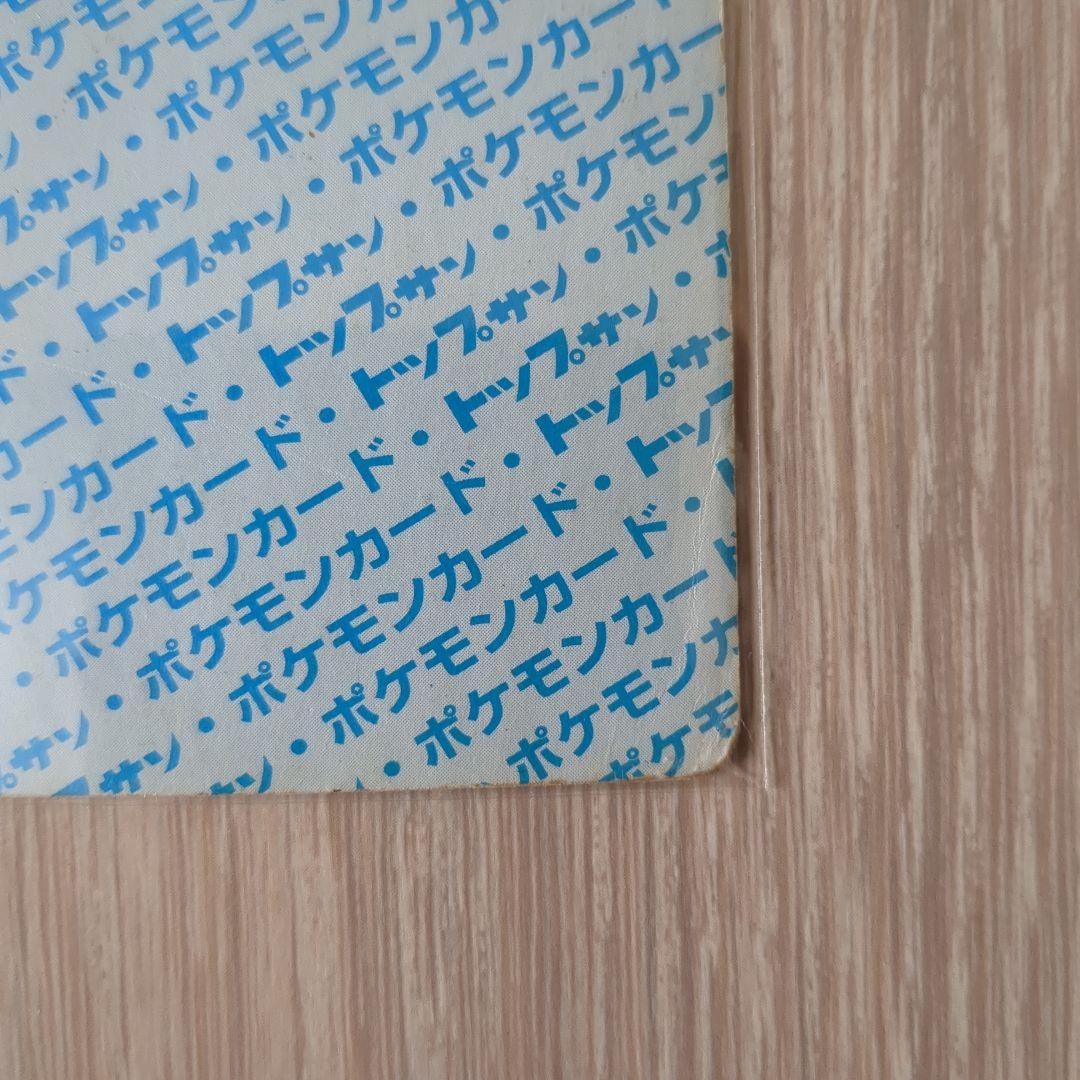 ポケモ
ン・ポケモン
サン・ポケモンカ
トップサン・ポケモンカー
ド・トップサン・ポケモンカー
カード・トップサン・ポケモンカー
モンカード・トップサン・ポケモン
ケモンカード・トップサン・ポケ
・ポケモンカード・トップサン・ポ
サン・ポケモンカード・トップサン
サン・ポケモンカード・トップ
サン・ポケモンカード・ト
・ポケモンカード
ポケモンカ
ポケモ